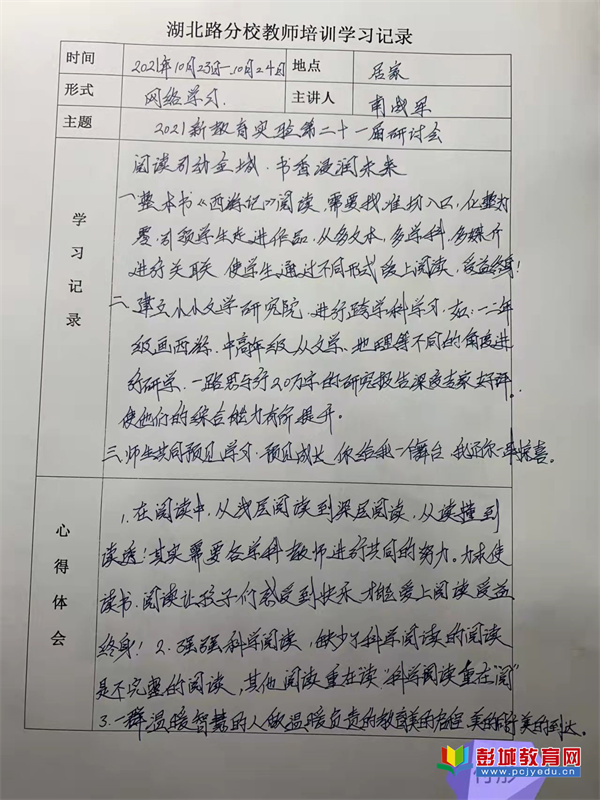 湖北路分校教师培训学习记录
时间 2021年10月23日—10月24日 地点 居家
形式 网络学习. 主讲人
主题 2021新教育实验第二十一届研讨会
学习记录
阅读引动全城·书香浸润未来
一、整本书《西游记》阅读,需要找准切入口,化整为
零,引领学生走进作品,从多文本,多学科,多媒介
进行关联,使学生通过不同形式爱上阅读,受益终身!
二、建立小小文学研究院,进行跨学科学习,如:一二年
级画西游,中高年级从文学、地理等不同的角度进
行研学,一路思与行20万字的研究报告深受专家好评。
使他们的综合能力有所提升。
三、师生共同预见学习,预见成长,你给我一个舞台,我还你一连惊喜。
心得体会
1、在阅读中,从浅层阅读到深层阅读,从读懂到
读透!其实需要各学科教师进行共同的努力。力求使
读书、阅读让孩子们感受到快乐,才能爱上阅读受益
终身!2、强强科学阅读,缺少了科学阅读的阅读
是不完整的阅读,其他阅读重在读,“科学阅读重在“阅”
3.一群温暖智慧的人做温暖负责的教育美的启程,美的行,美的到达。
彭城教育网
www.pcjyedu.cn